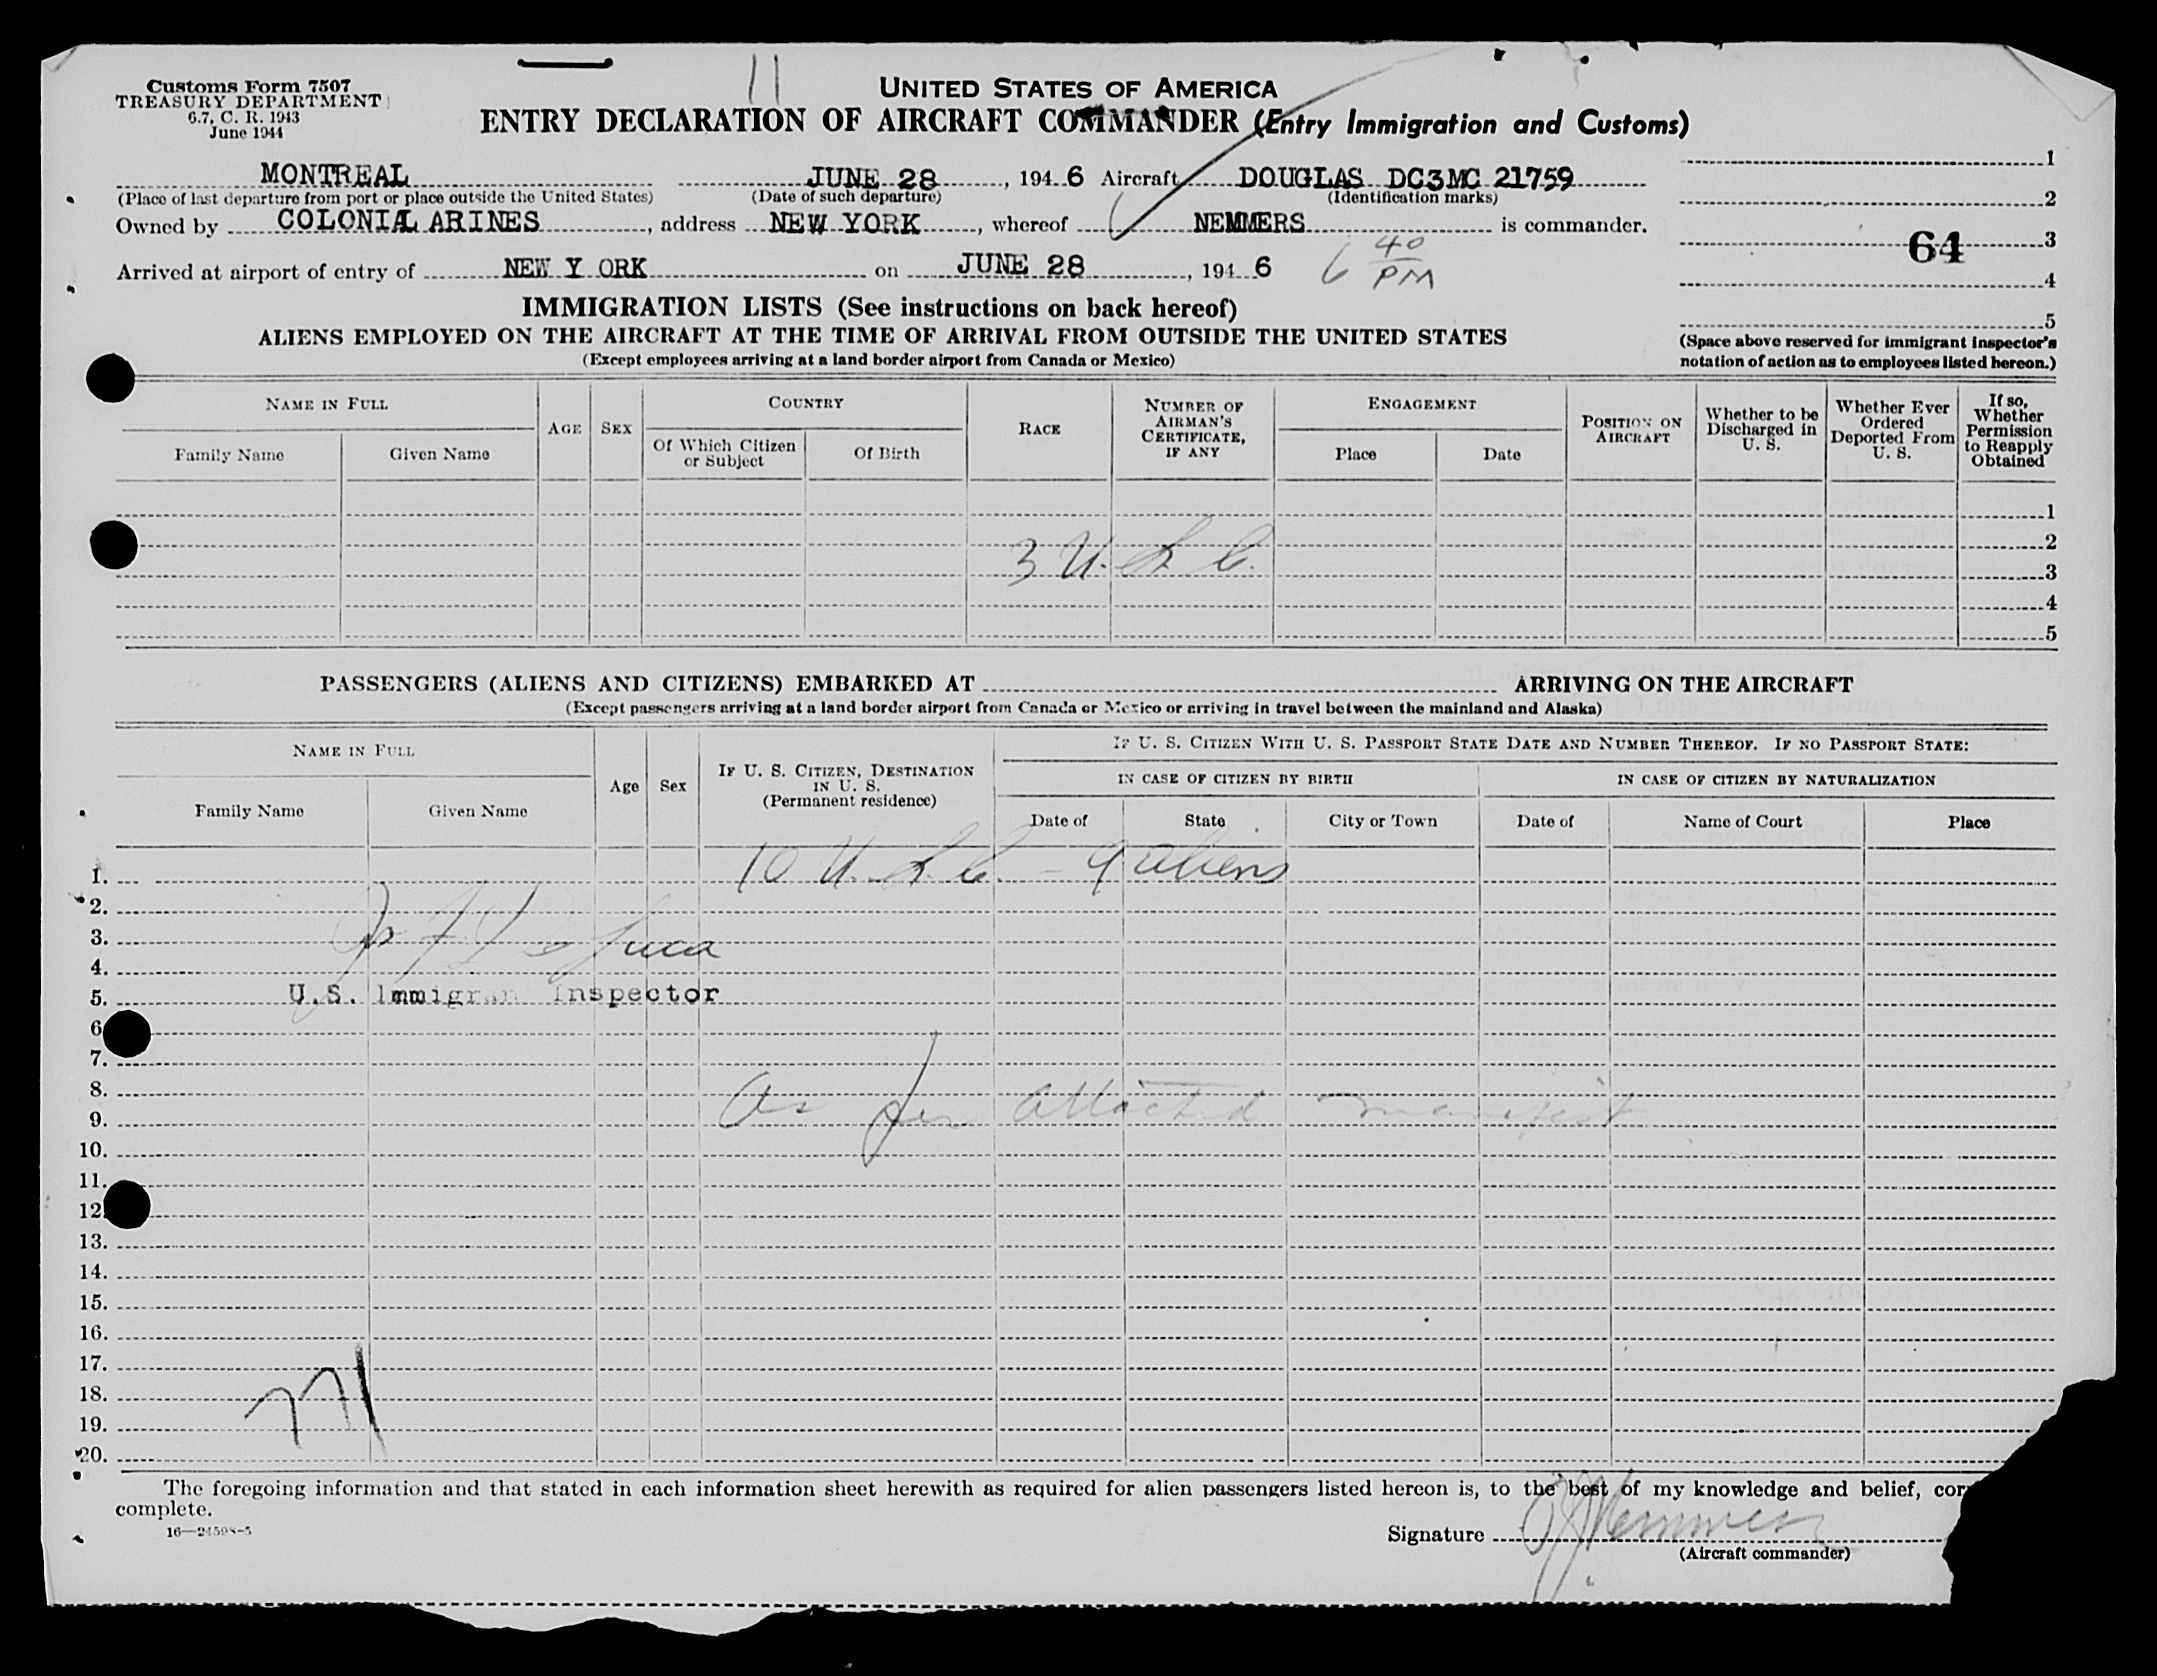 11
Customs Form 7507
TREASURY DEPARTMENT
6.7, C. R. 1943
June 1944
UNITED STATES OF AMERICA
ENTRY DECLARATION OF AIRCRAFT COMMANDER (Entry Immigration and Customs)
MONTREAL JUNE 28, 1946 Aircraft DOUGLAS DC3MC 21759
(Place of last departure from port or place outside the United States) (Date of such departure) (Identification marks)
Owned by COLONIAL ARINES, address NEW YORK, whereof NEMMERS is commander.
Arrived at airport of entry of NEW Y ORK on JUNE 28, 1946 6 40 PM
1
2
64 3
4
5
(Space above reserved for immigrant inspector's
notation of action as to employees listed hereon.)
IMMIGRATION LISTS (See instructions on back hereof)
ALIENS EMPLOYED ON THE AIRCRAFT AT THE TIME OF ARRIVAL FROM OUTSIDE THE UNITED STATES
(Except employees arriving at a land border airport from Canada or Mexico)
NAME IN FULL
Family Name Given Name
AGE SEX
COUNTRY
Of Which Citizen or Subject
Of Birth
RACE
NUMBER OF AIRMAN'S CERTIFICATE, IF ANY
ENGAGEMENT
Place Date
POSITION ON AIRCRAFT
Whether to be Discharged in U. S.
Whether Ever Ordered Deported From U. S.
If so, Whether Permission to Reapply Obtained
1
2
3 U.S.C.
3
4
5
PASSENGERS (ALIENS AND CITIZENS) EMBARKED AT ARRIVING ON THE AIRCRAFT
(Except passengers arriving at a land border airport from Canada or Mexico or arriving in travel between the mainland and Alaska)
NAME IN FULL
Family Name Given Name
Age Sex
IF U. S. CITIZEN, DESTINATION IN U. S.
(Permanent residence)
IF U. S. CITIZEN WITH U. S. PASSPORT STATE DATE AND NUMBER THEREOF. IF NO PASSPORT STATE:
IN CASE OF CITIZEN BY BIRTH IN CASE OF CITIZEN BY NATURALIZATION
Date of State City or Town Date of Name of Court Place
1. 10 U.S.C. - 9 aliens
2.
3.
4.
5. U.S. Immigrant Inspector
6
7.
8.
9. As per attached manifest
10.
11.
12.
13.
14.
15.
16.
17.
18.
19.
20.
The foregoing information and that stated in each information sheet herewith as required for alien passengers listed hereon is, to the best of my knowledge and belief, cor
complete.
16—24598-5
Signature
(Aircraft commander)